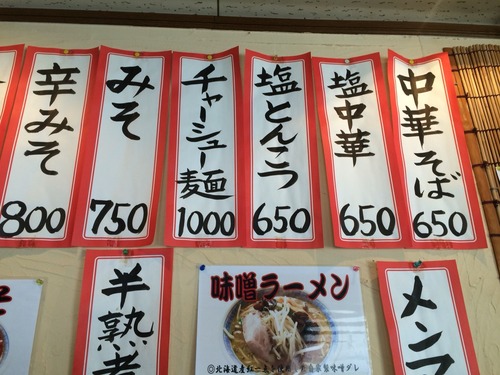 中華そば
650
塩中華
650
塩とんこつ
650
チャーシュー麺
1000
みそ
750
辛みそ
800
メンマ
味噌ラーメン
半熟煮